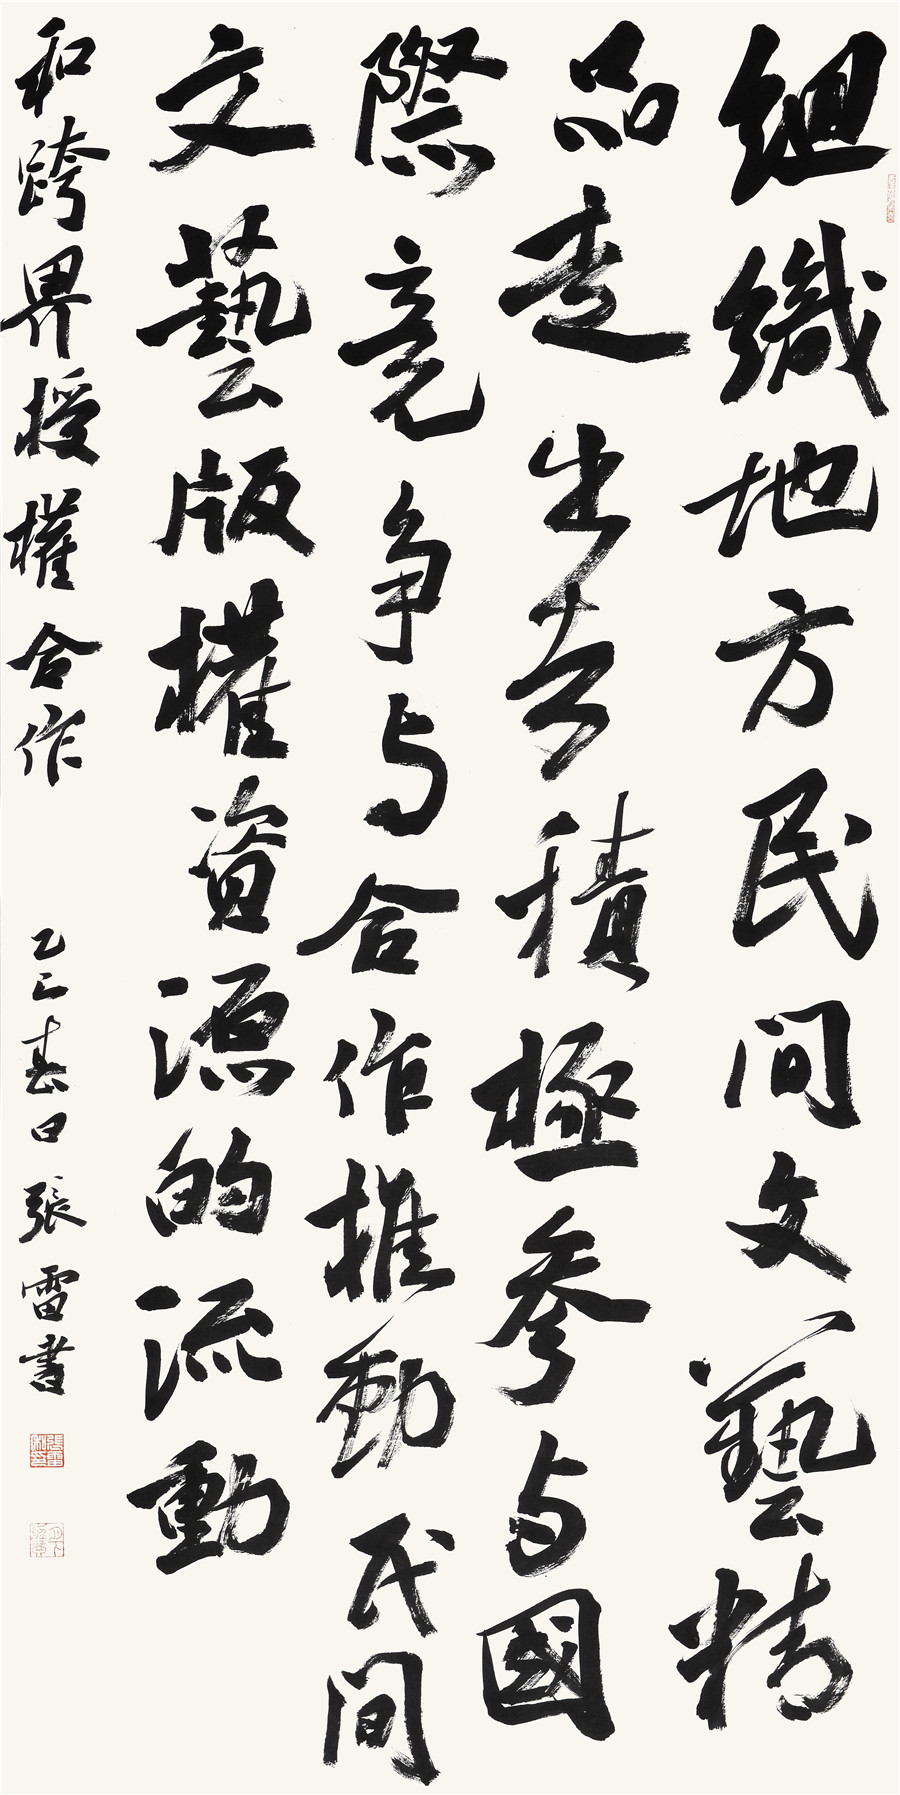 組織地方民间文藝精
品走出去積極參与國
際竞争与合作推動民间
文藝版權資源的流動
和跨界授權合作
乙巳春日張雷書